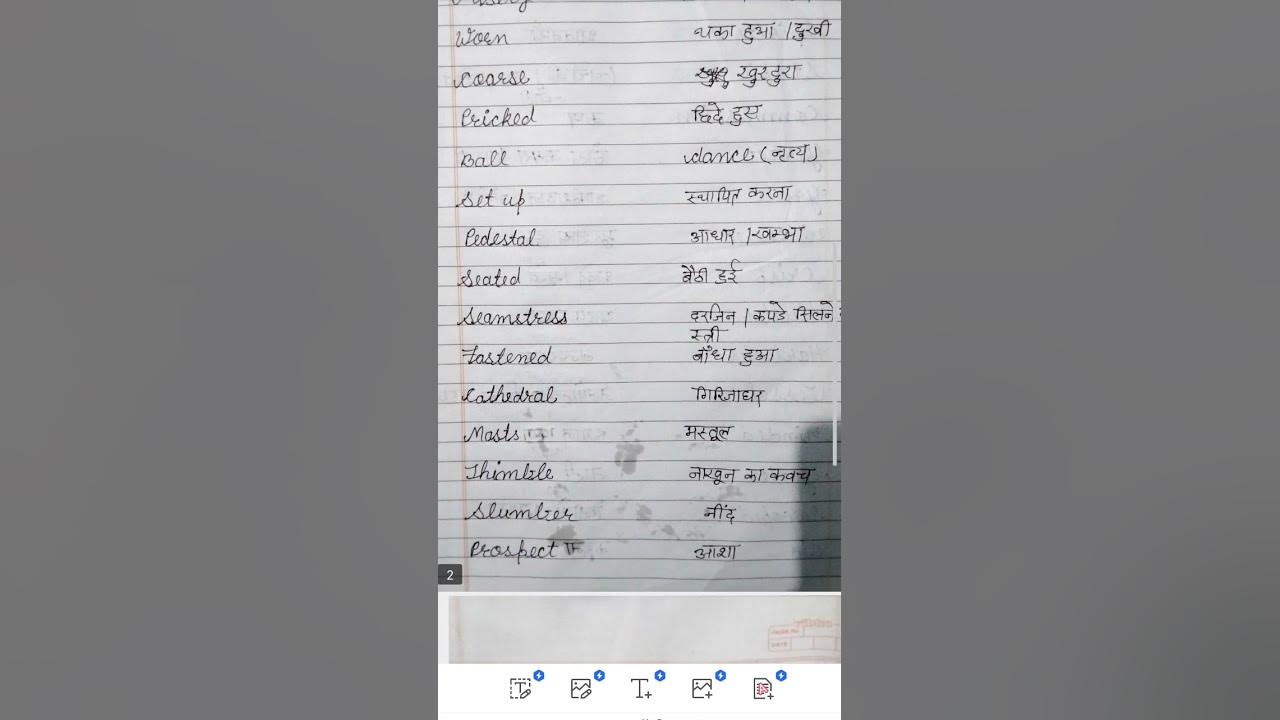 Worn थका हुआ / दुखी
Coarse खुरदुरा
Pricked छिदे हुए
Ball dance (नृत्य)
Set up स्थापित करना
Pedestal आधार / खम्भा
Seated बैठी हुई
Seamstress दरजिन / कपडे सिलने
स्त्री
Fastened बाँधा हुआ
Cathedral गिरिजाघर
Masts मस्तूल
Thimble नाखून का कवच
Slumber नींद
Prospect आशा
2